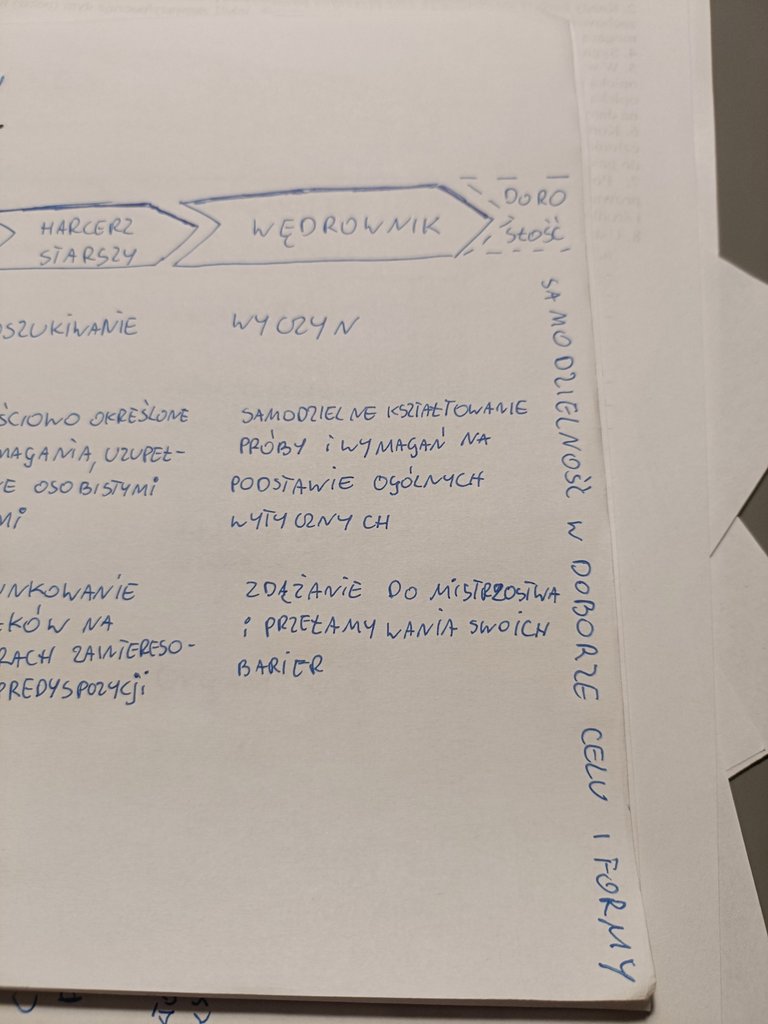 HARCERZ
STARSZY
WĘDROWNIK
DORO
SŁOŚĆ
OSZUKIWANIE
WYCZYN
ŚCIOWO OKREŚLONE
MAGANIA, UZUPEŁ-
E OSOBISTYMI
MI
SAMODZIELNE KSZTAŁTOWANIE
PRÓBY I WYMAGAŃ NA
PODSTAWIE OGÓLNYCH
WYTYCZNYCH
UNKOWANIE
KÓW NA
RACH ZAINTERESO-
PREDYSPOZYCJI
ZDĄŻANIE DO MISTRZOSTWA
I PRZEŁAMYWANIA SWOICH
BARIER
SAMODZIELNOŚĆ W DOBORZE CELU I FORMY